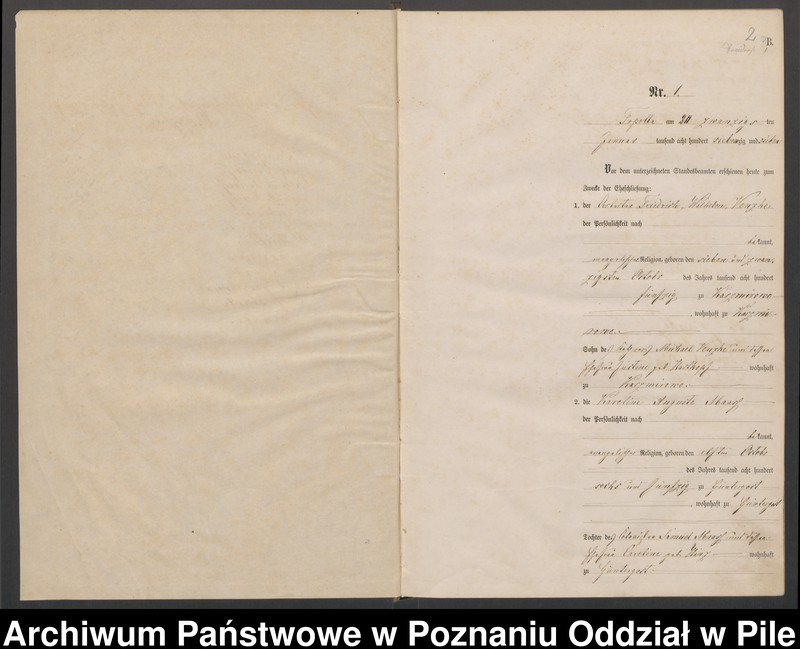 2
B.
Nr. 1.
am 20 zwanzigs ten
Januar tausend acht hundert siebenzig und sieben
Vor dem unterzeichneten Standesbeamten erschienen heute zum
Zwecke der Eheschließung:
1. der Friedrich, Wilhelm,
der Persönlichkeit nach
bekannt,
Religion, geboren den sieben und zwan-
zigsten Octobr des Jahres tausend acht hundert
fünfzig zu Kazmirowo
, wohnhaft zu Kazmi-
rowo
Sohn des Michael und dessen
Justine geb. wohnhaft
zu Kazmirowo
2. die Karoline Auguste Maaß
der Persönlichkeit nach
bekannt,
Religion, geboren den elften Octobr
des Jahres tausend acht hundert
sechs und fünfzig zu
, wohnhaft zu
Tochter des Samuel Maaß und dessen
Caroline geb. wohnhaft
zu
Archiwum Państwowe w Poznaniu Oddział w Pile